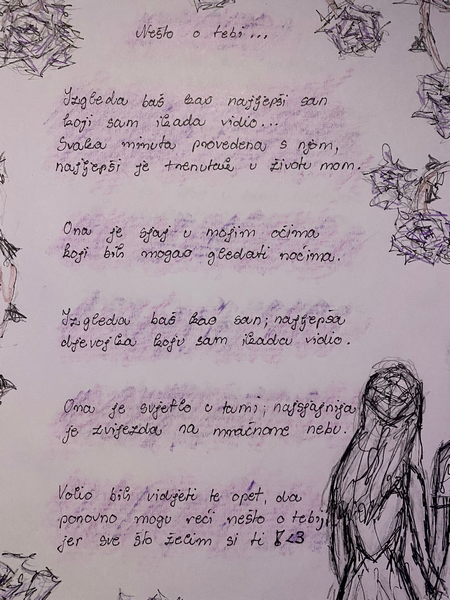 Nešto o tebi...
Izgleda baš kao najljepši san
koji sam ikada vidio...
Svaka minuta provedena s njom,
najljepši je trenutak u životu mom.
Ona je sjaj u mojim očima
koji bih mogao gledati noćima.
Izgleda baš kao san; najljepša
djevojka koju sam ikada vidio.
Ona je svjetlo u tami; najsjajnija
je zvijezda na mračnome nebu.
Volio bih vidjeti te opet, da
ponovno mogu reći nešto o tebi,
jer sve što želim si ti <3